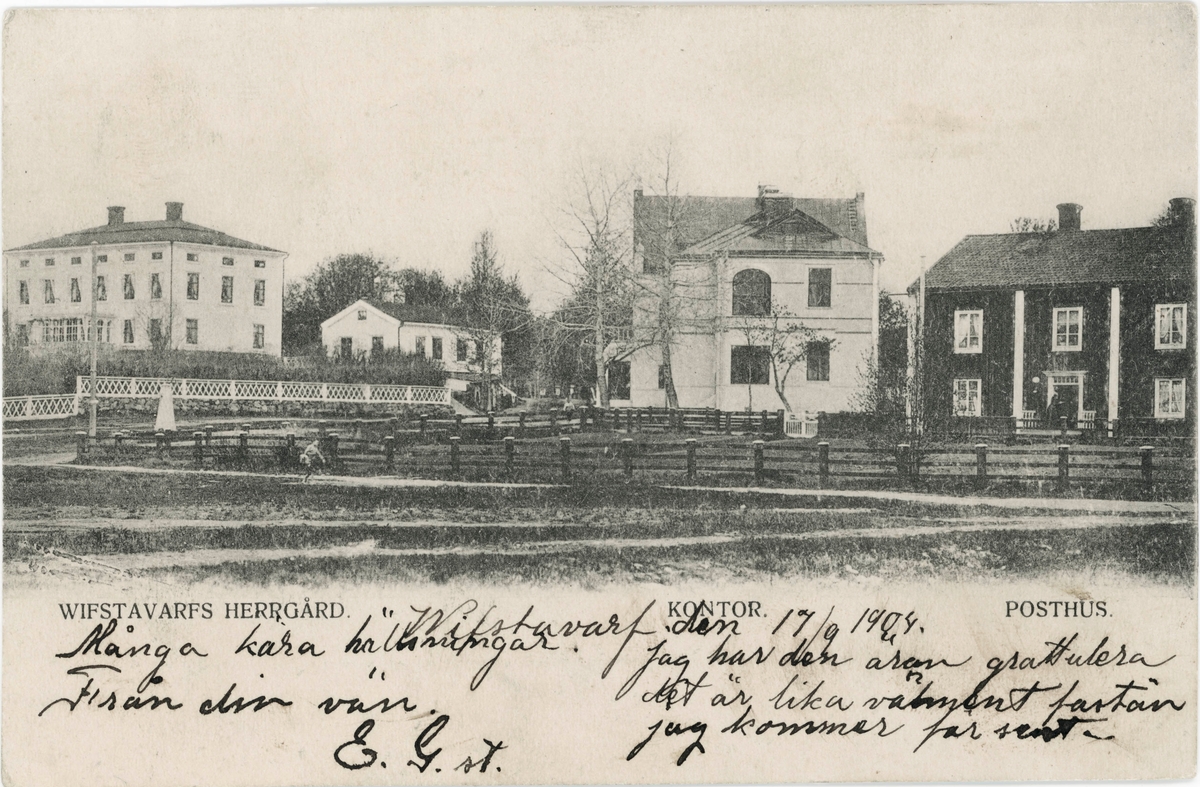 WIFSTAVARFS HERRGÅRD. KONTOR. POSTHUS.
Wifstavarf. den 17/9 1904.
Många kära hälsningar.
Från din vän.
E. G. st.
jag har den äran grattulera
det är lika välment fastän
jag kommer for sent.